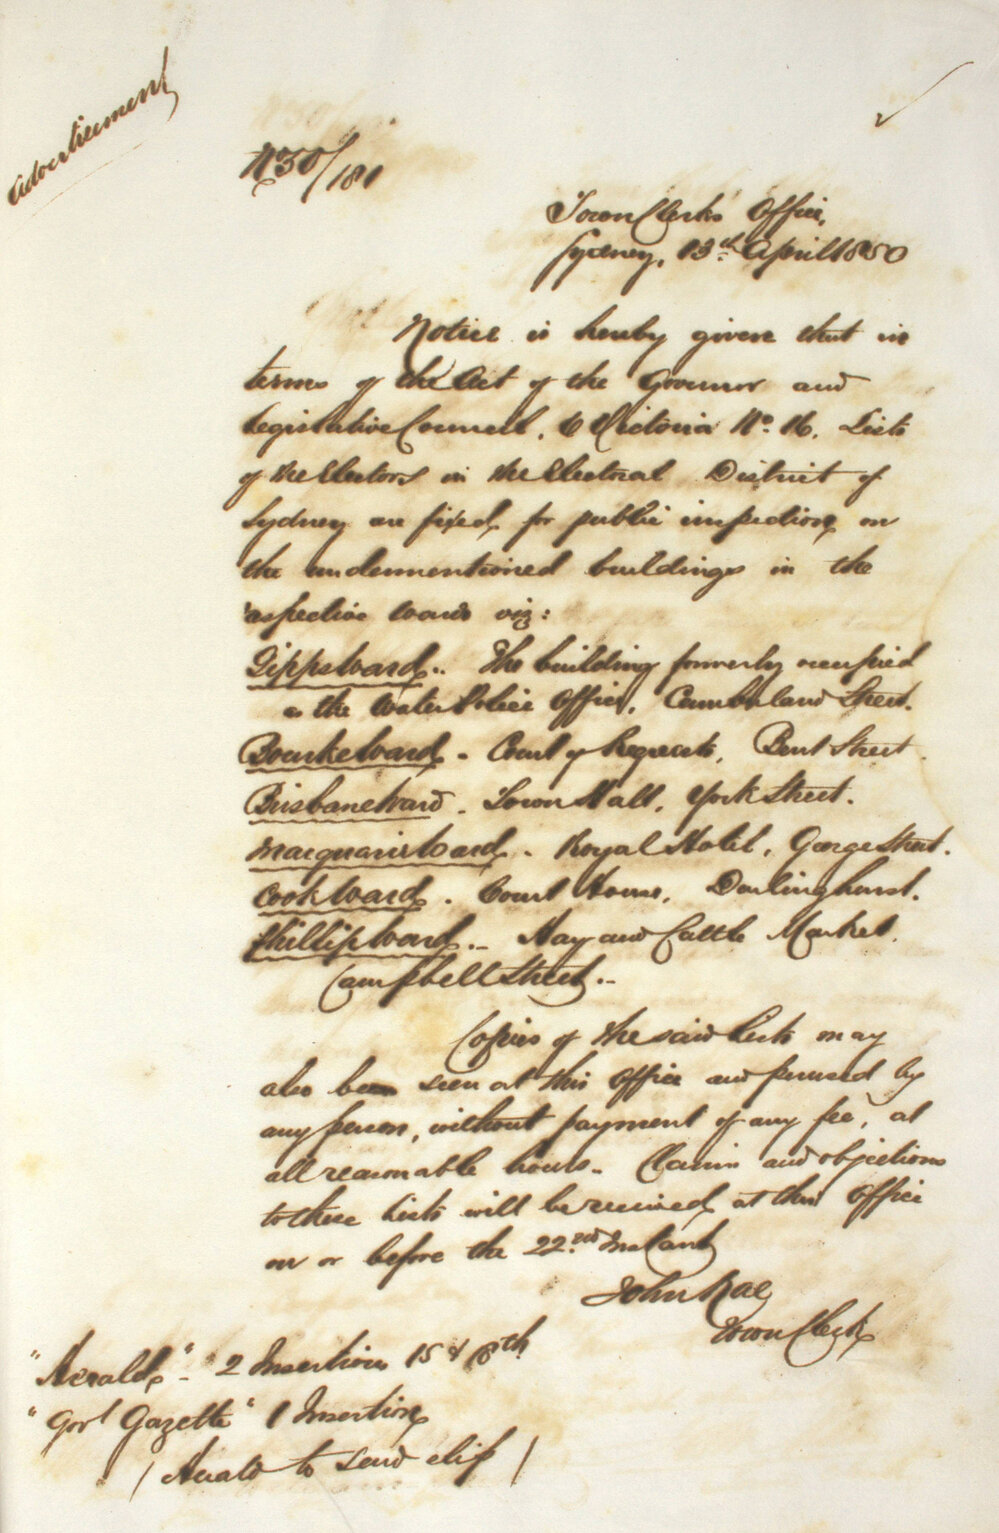 Advertisement
N 50/181
Town Clerk's Office,
Sydney, 13th April 1850
Notice is hereby given that in
terms of the Act of the Governor and
Legislative Council, 6 Victoria No. 16, Lists
of the Electors in the Electoral District of
Sydney are fixed, for public inspection, on
the undermentioned buildings in the
respective wards viz:
Gipps Ward.. The building formerly occupied
as the Water Police Office, Cumberland Street.
Bourke Ward - Court of Requests, Bent Street.
Brisbane Ward - Town Hall, York Street.
Macquarie Ward - Royal Hotel, George Street.
Cook Ward - Court House, Darlinghurst.
Phillip Ward - Hay and Cattle Market,
Campbell Street..
Copies of the said Lists may
also be seen at this Office and perused by
any person, without payment of any fee, at
all reasonable hours. Claims and objections
to these Lists will be received at this Office
on or before the 22nd Instant
John Rae
Town Clerk
"Herald" - 2 Insertions 15 & 18th
"Govt Gazette" 1 Insertion
(Herald to send slip)